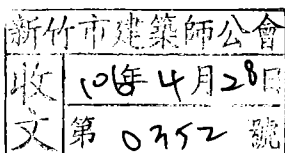 新竹市建築師公會
收文
106年4月28日
第0352號